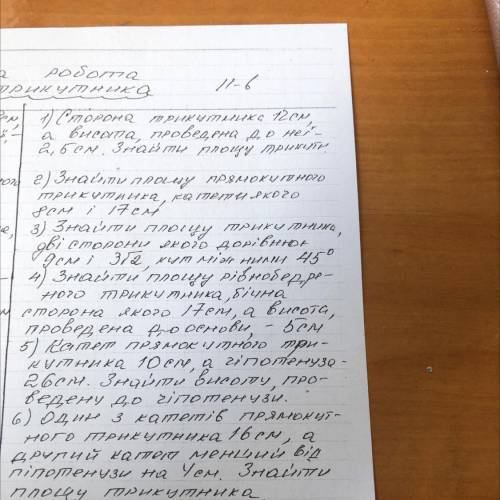 а робота
трикутника II-в
1) Сторона трикутника 12см,
а висота, проведена до неї -
2,5см. Знайти площу трикутн.
2) Знайти площу прямокутного
трикутника, катети якого
8см і 17см
3) Знайти площу трикутника,
дві сторони якого дорівнюю
9см і 3√2, кут між ними 45°
4) Знайти площу рівнобедре-
ного трикутника, бічна
сторона якого 17см, а висота,
проведена до основи, - 5см
5) Катет прямокутного три-
кутника 10см, а гіпотенуза -
26см. Знайти висоту, про-
ведену до гіпотенузи.
6) Один з катетів прямокут-
ного трикутника 16см, а
другий катет менший від
гіпотенузи на 4см. Знайти
площу трикутника.